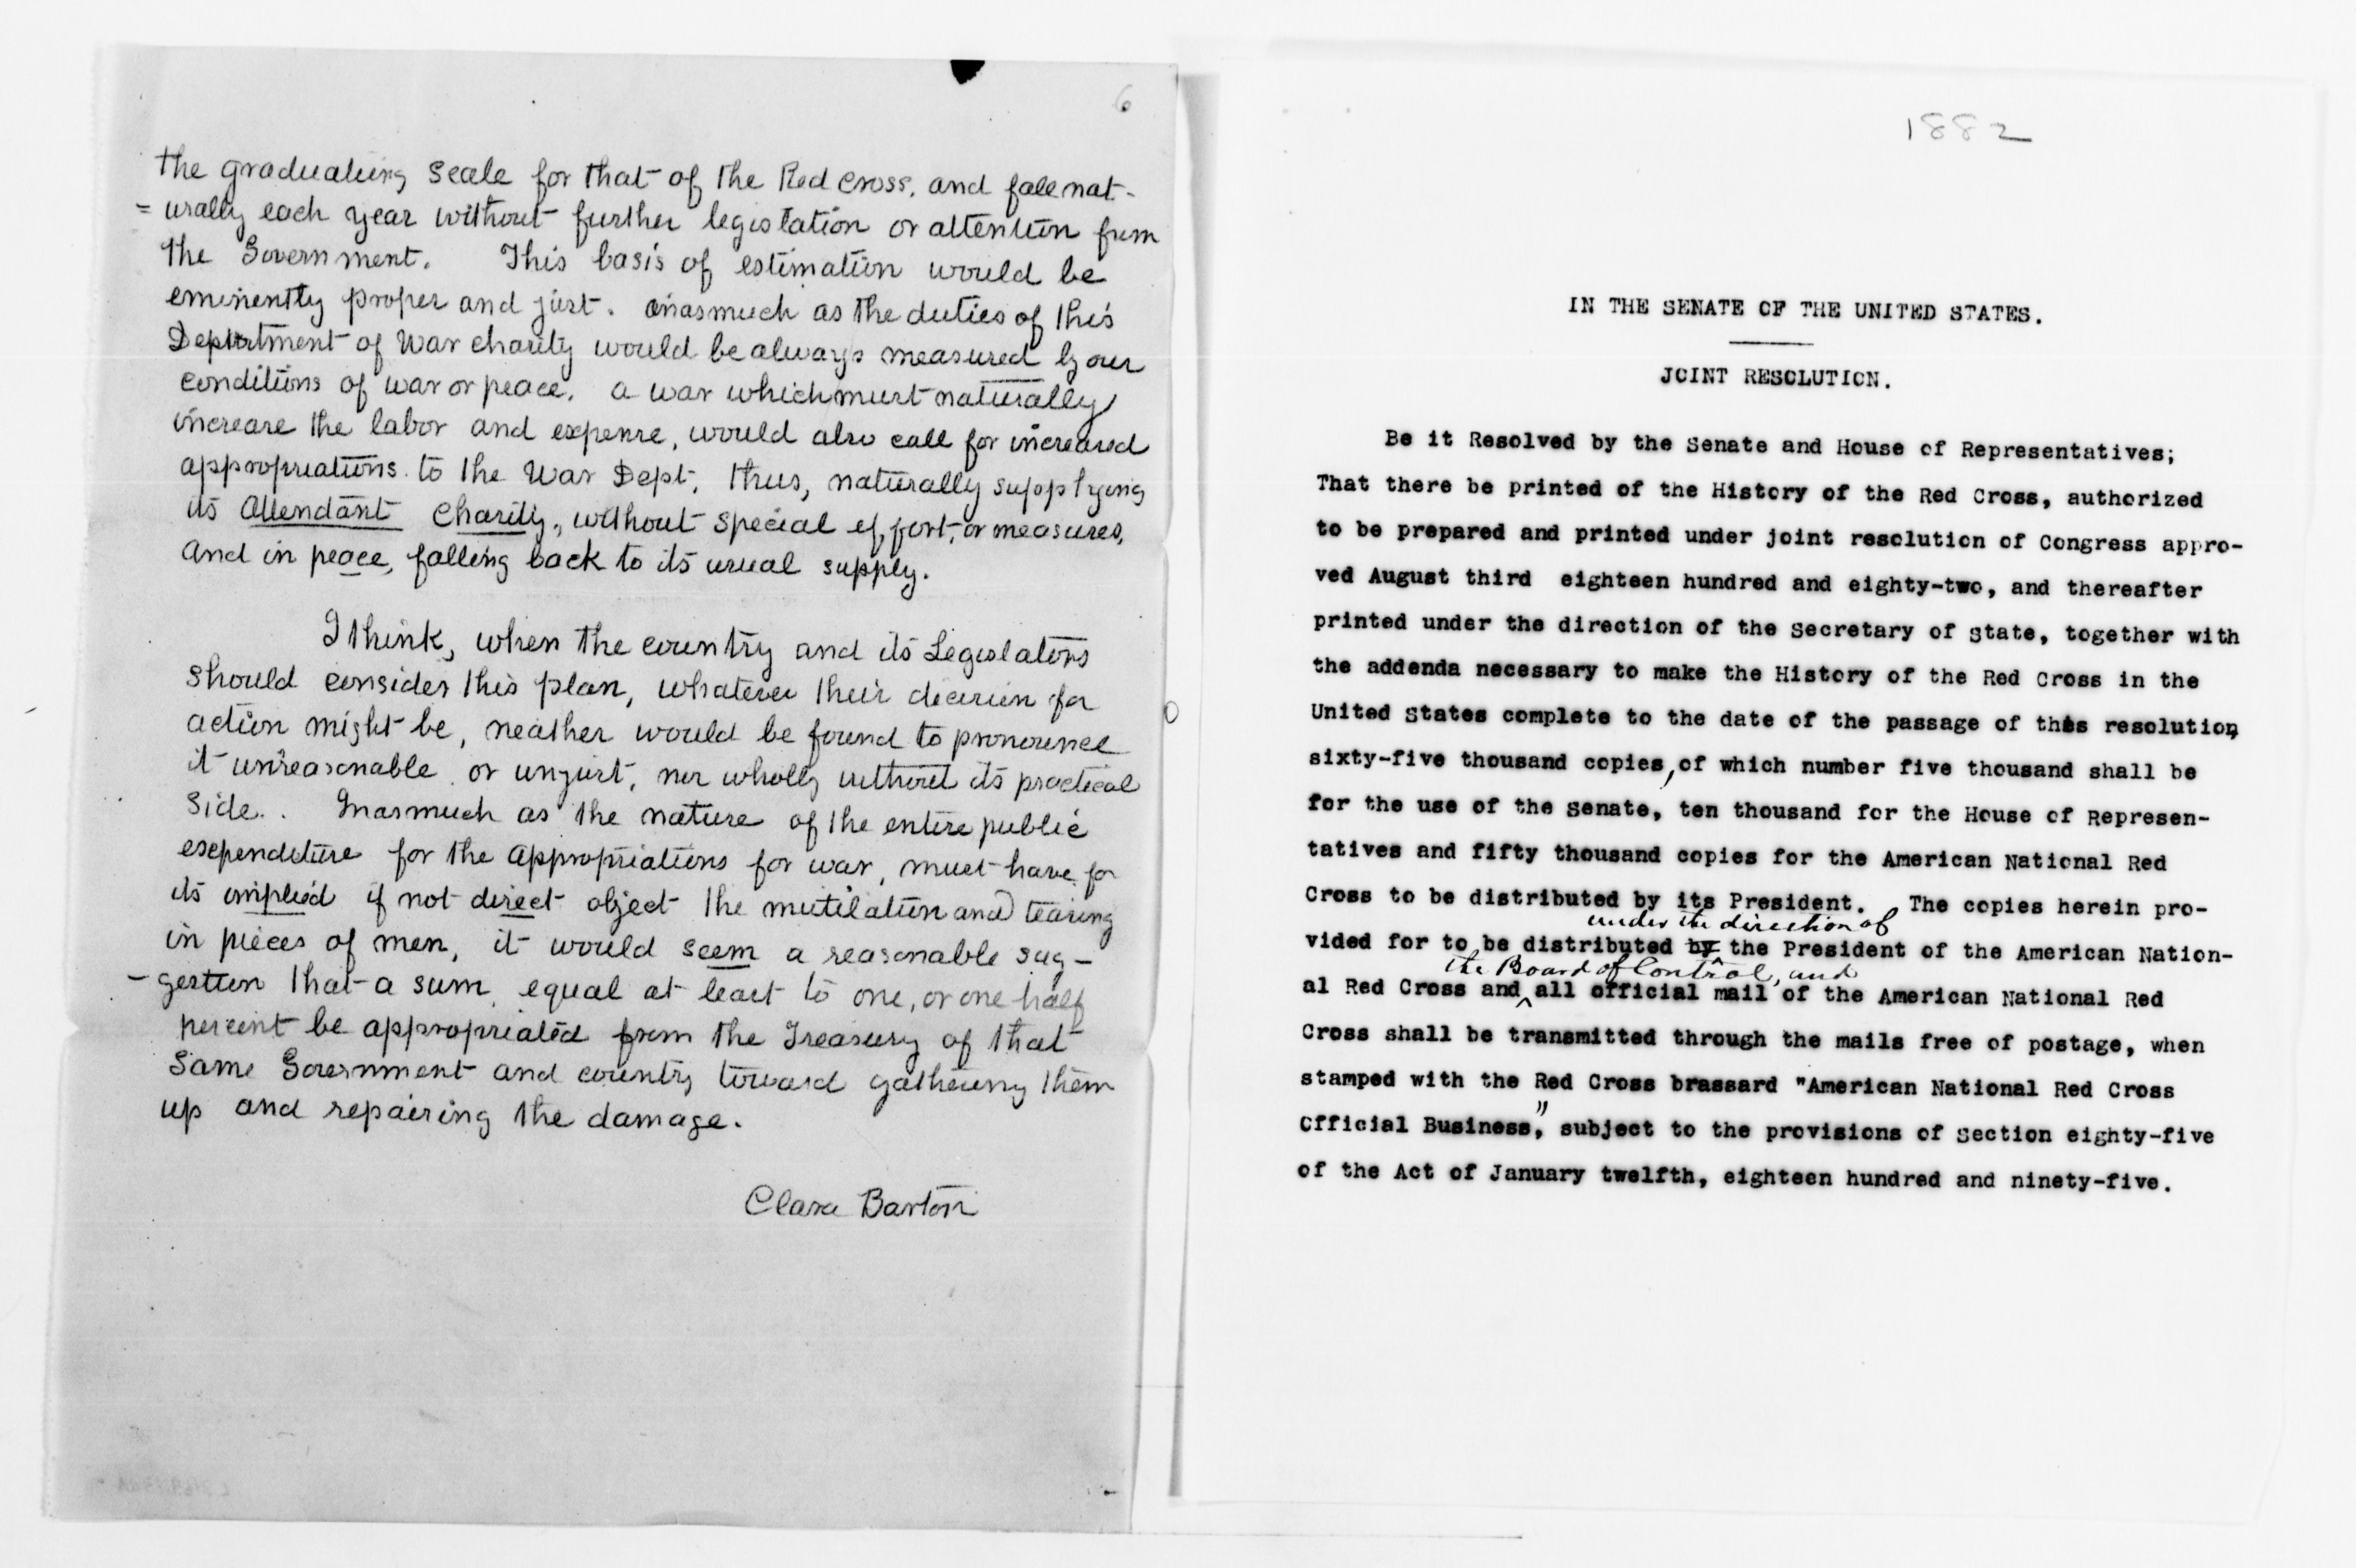 6
the graduating scale for that of the Red Cross, and fall nat-
=urally each year without further legislation or attention from
the Government. This basis of estimation would be
eminently proper and just. inasmuch as the duties of this
Department of War charity would be always measured by our
conditions of war or peace. a war which must naturally
increase the labor and expense, would also call for increased
appropriations to the War Dept, thus, naturally supplying
its attendant charity, without special effort, or measures,
and in peace, falling back to its usual supply.
I think, when the country and its Legislators
should consider this plan, whatever their decision for
action might be, neather would be found to pronounce
it unreasonable or unjust, nor wholly without its practical
side. Inasmuch as the nature of the entire public
expenditure for the appropriations for war, must have for
its implied if not direct object the mutilation and tearing
in pieces of men, it would seem a reasonable sug-
-gestion that a sum equal at least to one, or one half
percent be appropriated from the Treasury of that
same Government and country toward gathering them
up and repairing the damage.
Clara Barton
1882
IN THE SENATE OF THE UNITED STATES.
JOINT RESOLUTION.
Be it Resolved by the Senate and House of Representatives;
That there be printed of the History of the Red Cross, authorized
to be prepared and printed under joint resolution of Congress appro-
ved August third eighteen hundred and eighty-two, and thereafter
printed under the direction of the Secretary of State, together with
the addenda necessary to make the History of the Red Cross in the
United States complete to the date of the passage of this resolution,
sixty-five thousand copies, of which number five thousand shall be
for the use of the Senate, ten thousand for the House of Represen-
tatives and fifty thousand copies for the American National Red
Cross to be distributed by its President. The copies herein pro-
under the direction of
vided for to be distributed by the President of the American Nation-
the Board of Control, and
al Red Cross and all official mail of the American National Red
Cross shall be transmitted through the mails free of postage, when
stamped with the Red Cross brassard "American National Red Cross
Official Business", subject to the provisions of Section eighty-five
of the Act of January twelfth, eighteen hundred and ninety-five.